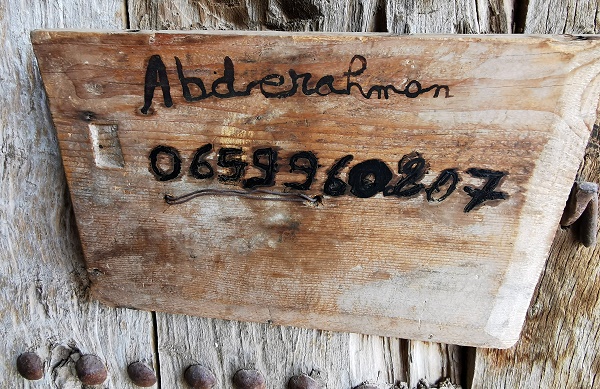 Abderrahman
0659960207